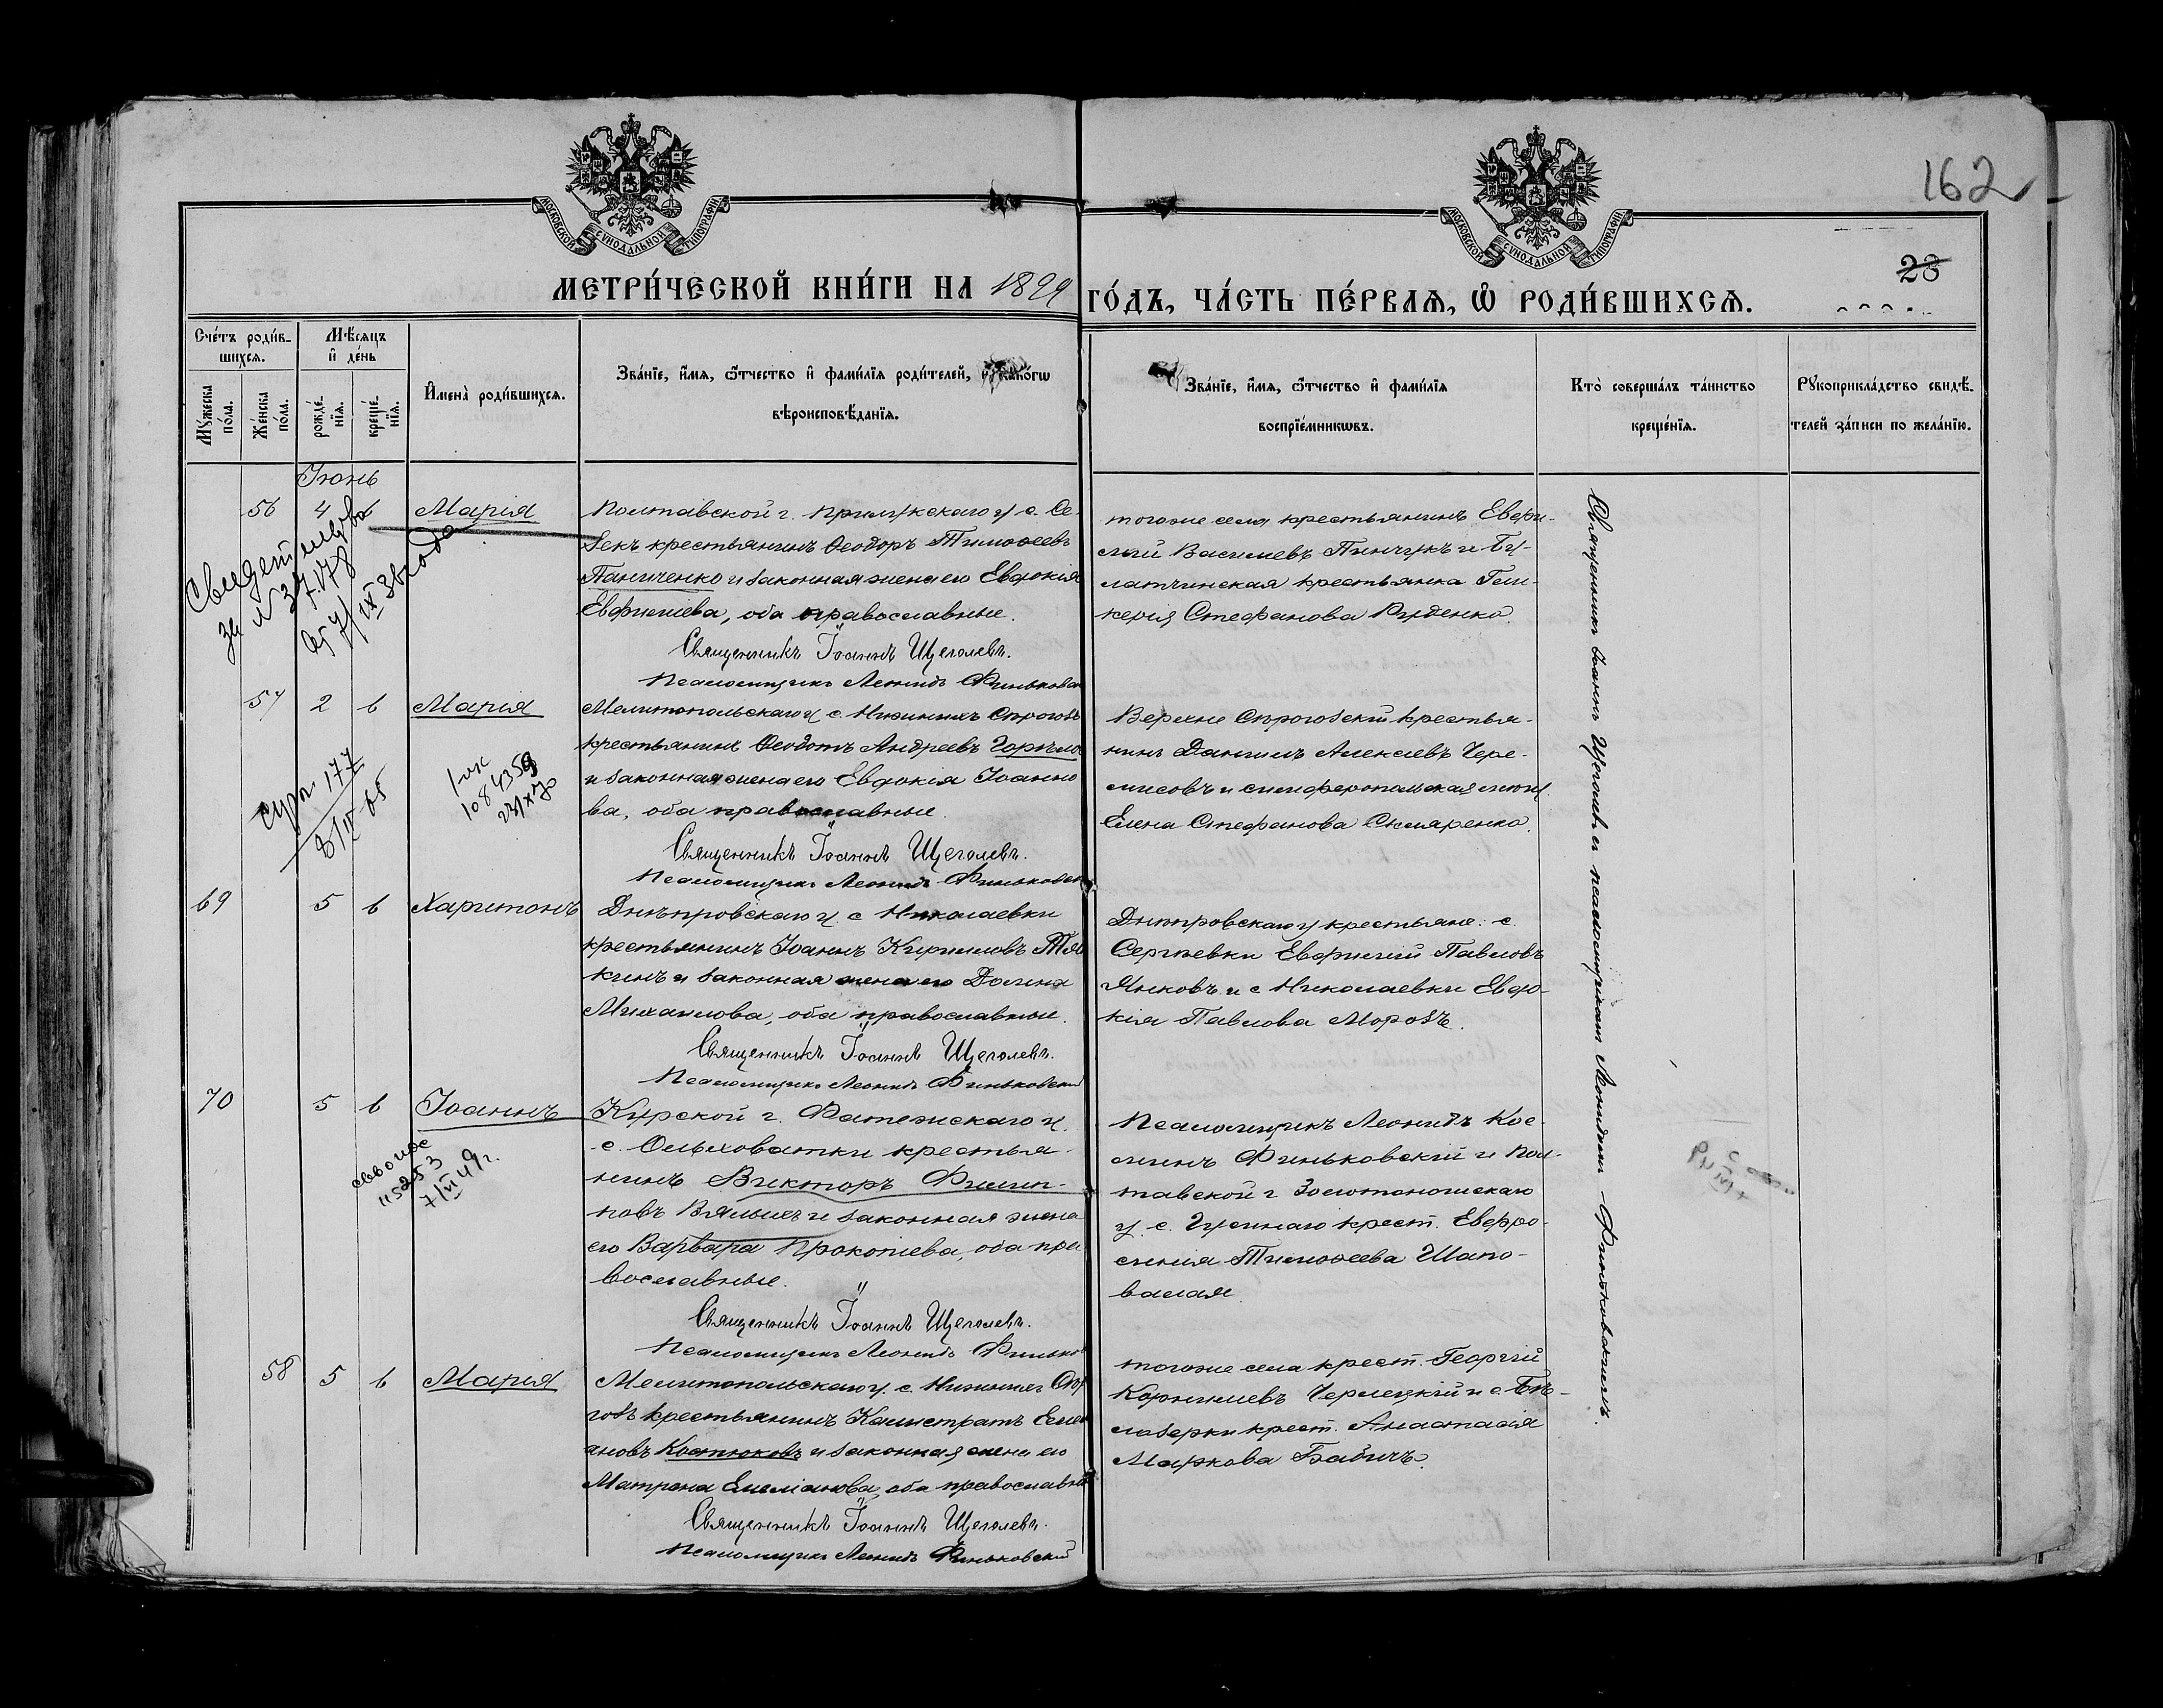 162
МОСКОВСКОЙ СѴНОДАЛЬНОЙ ТИПОГРАФІИ
МОСКОВСКОЙ СѴНОДАЛЬНОЙ ТИПОГРАФІИ
28
МЕТРИ́ЧЕСКОЙ КНИ́ГИ НА 1899 ГО́ДЪ, ЧА́СТЬ ПЕ́РВАѦ, Ѽ РОДИ́ВШИХСѦ.
Сче́тъ роди́в-
шихсѧ.
Мѣ́сяцъ
и҆ де́нь
Мꙋ́жеска
по́ла.
Же́нска
по́ла.
рожде́-
нїѧ.
креще́-
нїѧ.
И҆мена̀ роди́вшихсѧ.
Зва́нїе, и҆́мѧ, ѻ҆́тчество и҆ фами́лїѧ роди́телей, и҆ како́гѡ
вѣроисповѣ́данїѧ.
Зва́нїе, и҆́мѧ, ѻ҆́тчество и҆ фами́лїѧ
воспрїе́мникѡвъ.
Кто̀ соверша́лъ та́инство
креще́нїѧ.
Рꙋкоприкла́дство свидѣ́-
телей за́писи по жела́нїю.
Іюнь
56 4 6 Марія
Полтавской г. Прилукскаго у. с. Се-
бекъ крестьянинъ Ѳеодоръ Тимоѳеевъ
Паниченко и законная жена его Евдокія
Евфиміева, оба православные.
Священникъ Іоаннъ Щеголевъ.
Псаломщикъ Леонидъ Финьковск
тогоже села крестьянинъ Евфи-
мій Васильевъ Пинчукъ и Бу-
латчинская крестьянка Гли-
керія Стефанова Руденко.
Свидетельство
за №
IX 38 года
57 2 6 Марія
Мелитопольскаго у. с. Нижнихъ Сѣрогозъ
крестьянинъ Ѳеодотъ Андреевъ Горѣло
и законная жена его Евдокія Іоанно
ва, оба православные.
Священникъ Іоаннъ Щеголевъ.
Псаломщикъ Леонидъ Финьковск
Верхне Сѣрогозскій крестья-
нинъ Даніилъ Алексѣевъ Чере-
мисовъ и симферопольская мѣщ.
Елена Стефанова Скляренко.
177
1084359
69 5 6 Харитонъ
Днѣпровскаго у. с. Николаевки
крестьянинъ Іоаннъ Кирилловъ Тя
кинъ и законная жена его Домна
Михаилова, оба православные.
Священникъ Іоаннъ Щеголевъ.
Псаломщикъ Леонидъ Финьковскій
Днѣпровскаго у крестьяне: с.
Сергѣевки Евфимій Павловъ
Янковъ и с Николаевки Евдо-
кія Павлова Морозъ.
70 5 6 Іоаннъ
Курской г. Фатежскаго у.
с. Ольховатки крестья-
нинъ Викторъ Филип-
повъ Вялыхъ и законная жена
его Варвара Прокопіева, оба пра
вославные.
Священникъ Іоаннъ Щеголевъ.
Псаломщикъ Леонидъ Финьков
Псаломщикъ Леонидъ Кос-
минъ Финьковскій и Пол-
тавской г Золотоношскаго
у. с. Гусинаго крест. Евфро-
синія Тимоѳеева Шапо-
валая
115253
7/VI 49 г.
58 5 6 Марія
Мелитопольскаго у. с. Нижнихъ Сѣр
гозъ крестьянинъ Калистратъ Емел
ановъ Костюковъ и законная жена его
Матрона Емеліанова, оба православн
Священникъ Іоаннъ Щеголевъ.
Псаломщикъ Леонидъ Финьковскій
тогоже села крест. Георгій
Корниліевъ Черлецкій и с. Бѣ-
лозерки крест. Анастасія
Маркова Бабичъ.
Священникъ Іоаннъ Щеголевъ съ псаломщикомъ Леонидомъ Финьковскимъ.